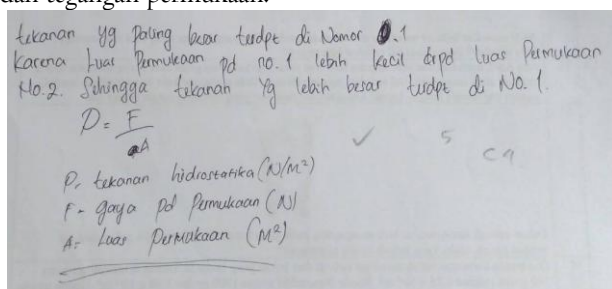 dan tegangan permukaan.
tekanan yg paling besar terdpt di Nomor 1
Karena luas Permukaan pd no. 1 lebih kecil drpd luas Permukaan
No. 2. Sehingga tekanan yg lebih besar terdpt di No. 1.
P = F
A
✓ 5
C4
P = tekanan hidrostatika (N/m²)
F = gaya pd Permukaan (N)
A = Luas Permukaan (M²)